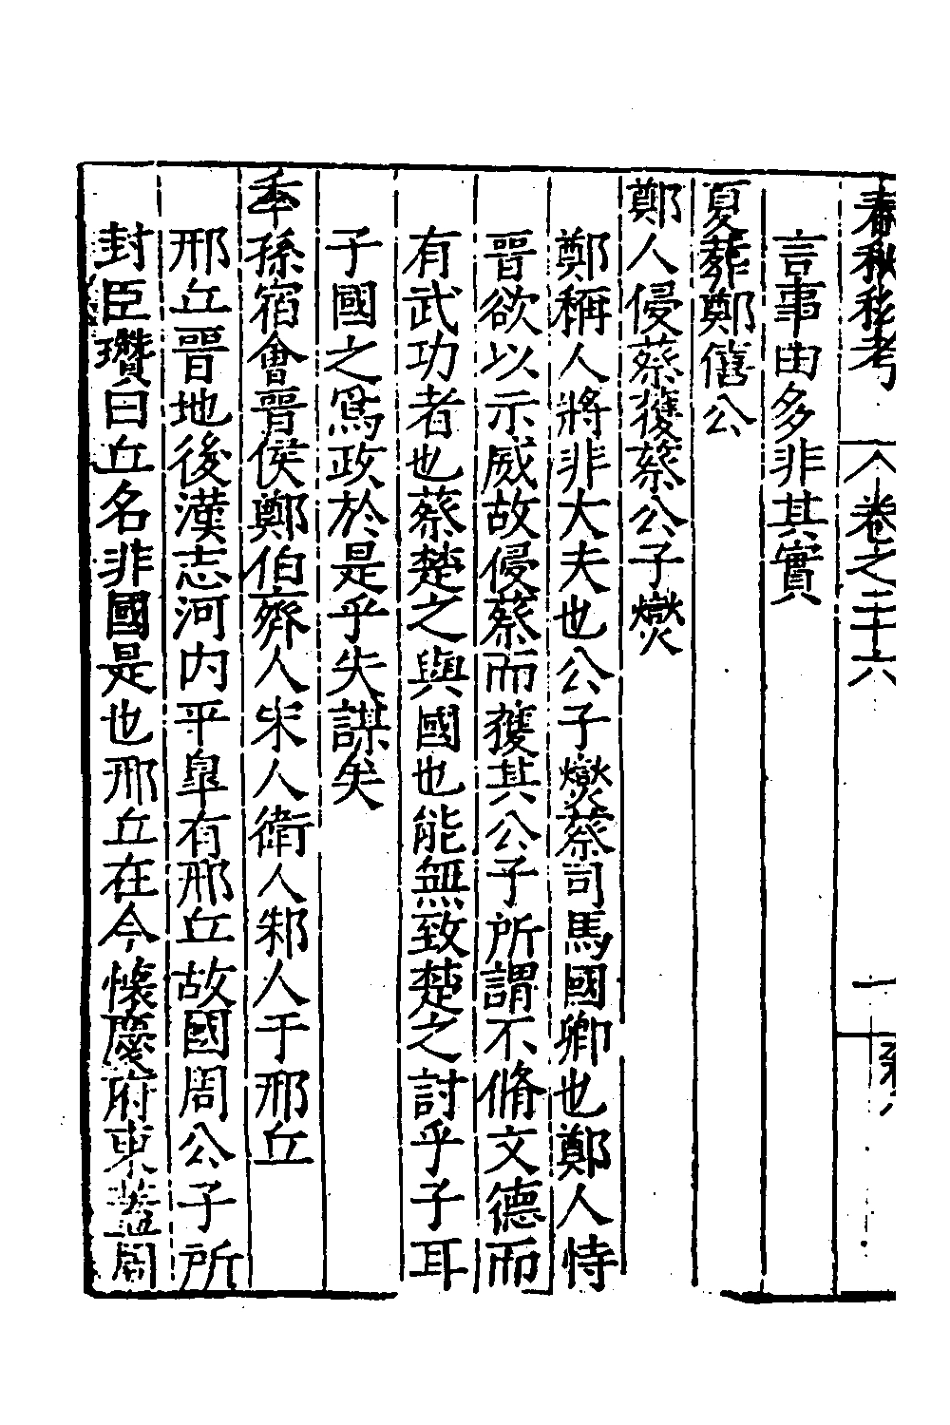 春秋私考 卷之二十六 一
言事由多非其實
夏葬鄭僖公
鄭人侵蔡獲蔡公子燮
鄭稱人將非大夫也公子燮蔡司馬國卿也鄭人恃
晉欲以示威故侵蔡而獲其公子所謂不脩文德而
有武功者也蔡楚之與國也能無致楚之討乎子耳
子國之爲政於是乎失謀矣
季孫宿會晉侯鄭伯齊人宋人衛人邾人于邢丘
邢丘晉地後漢志河内平皐有邢丘故國周公子所
封臣瓚曰丘名非國是也邢丘在今懷慶府東葢周